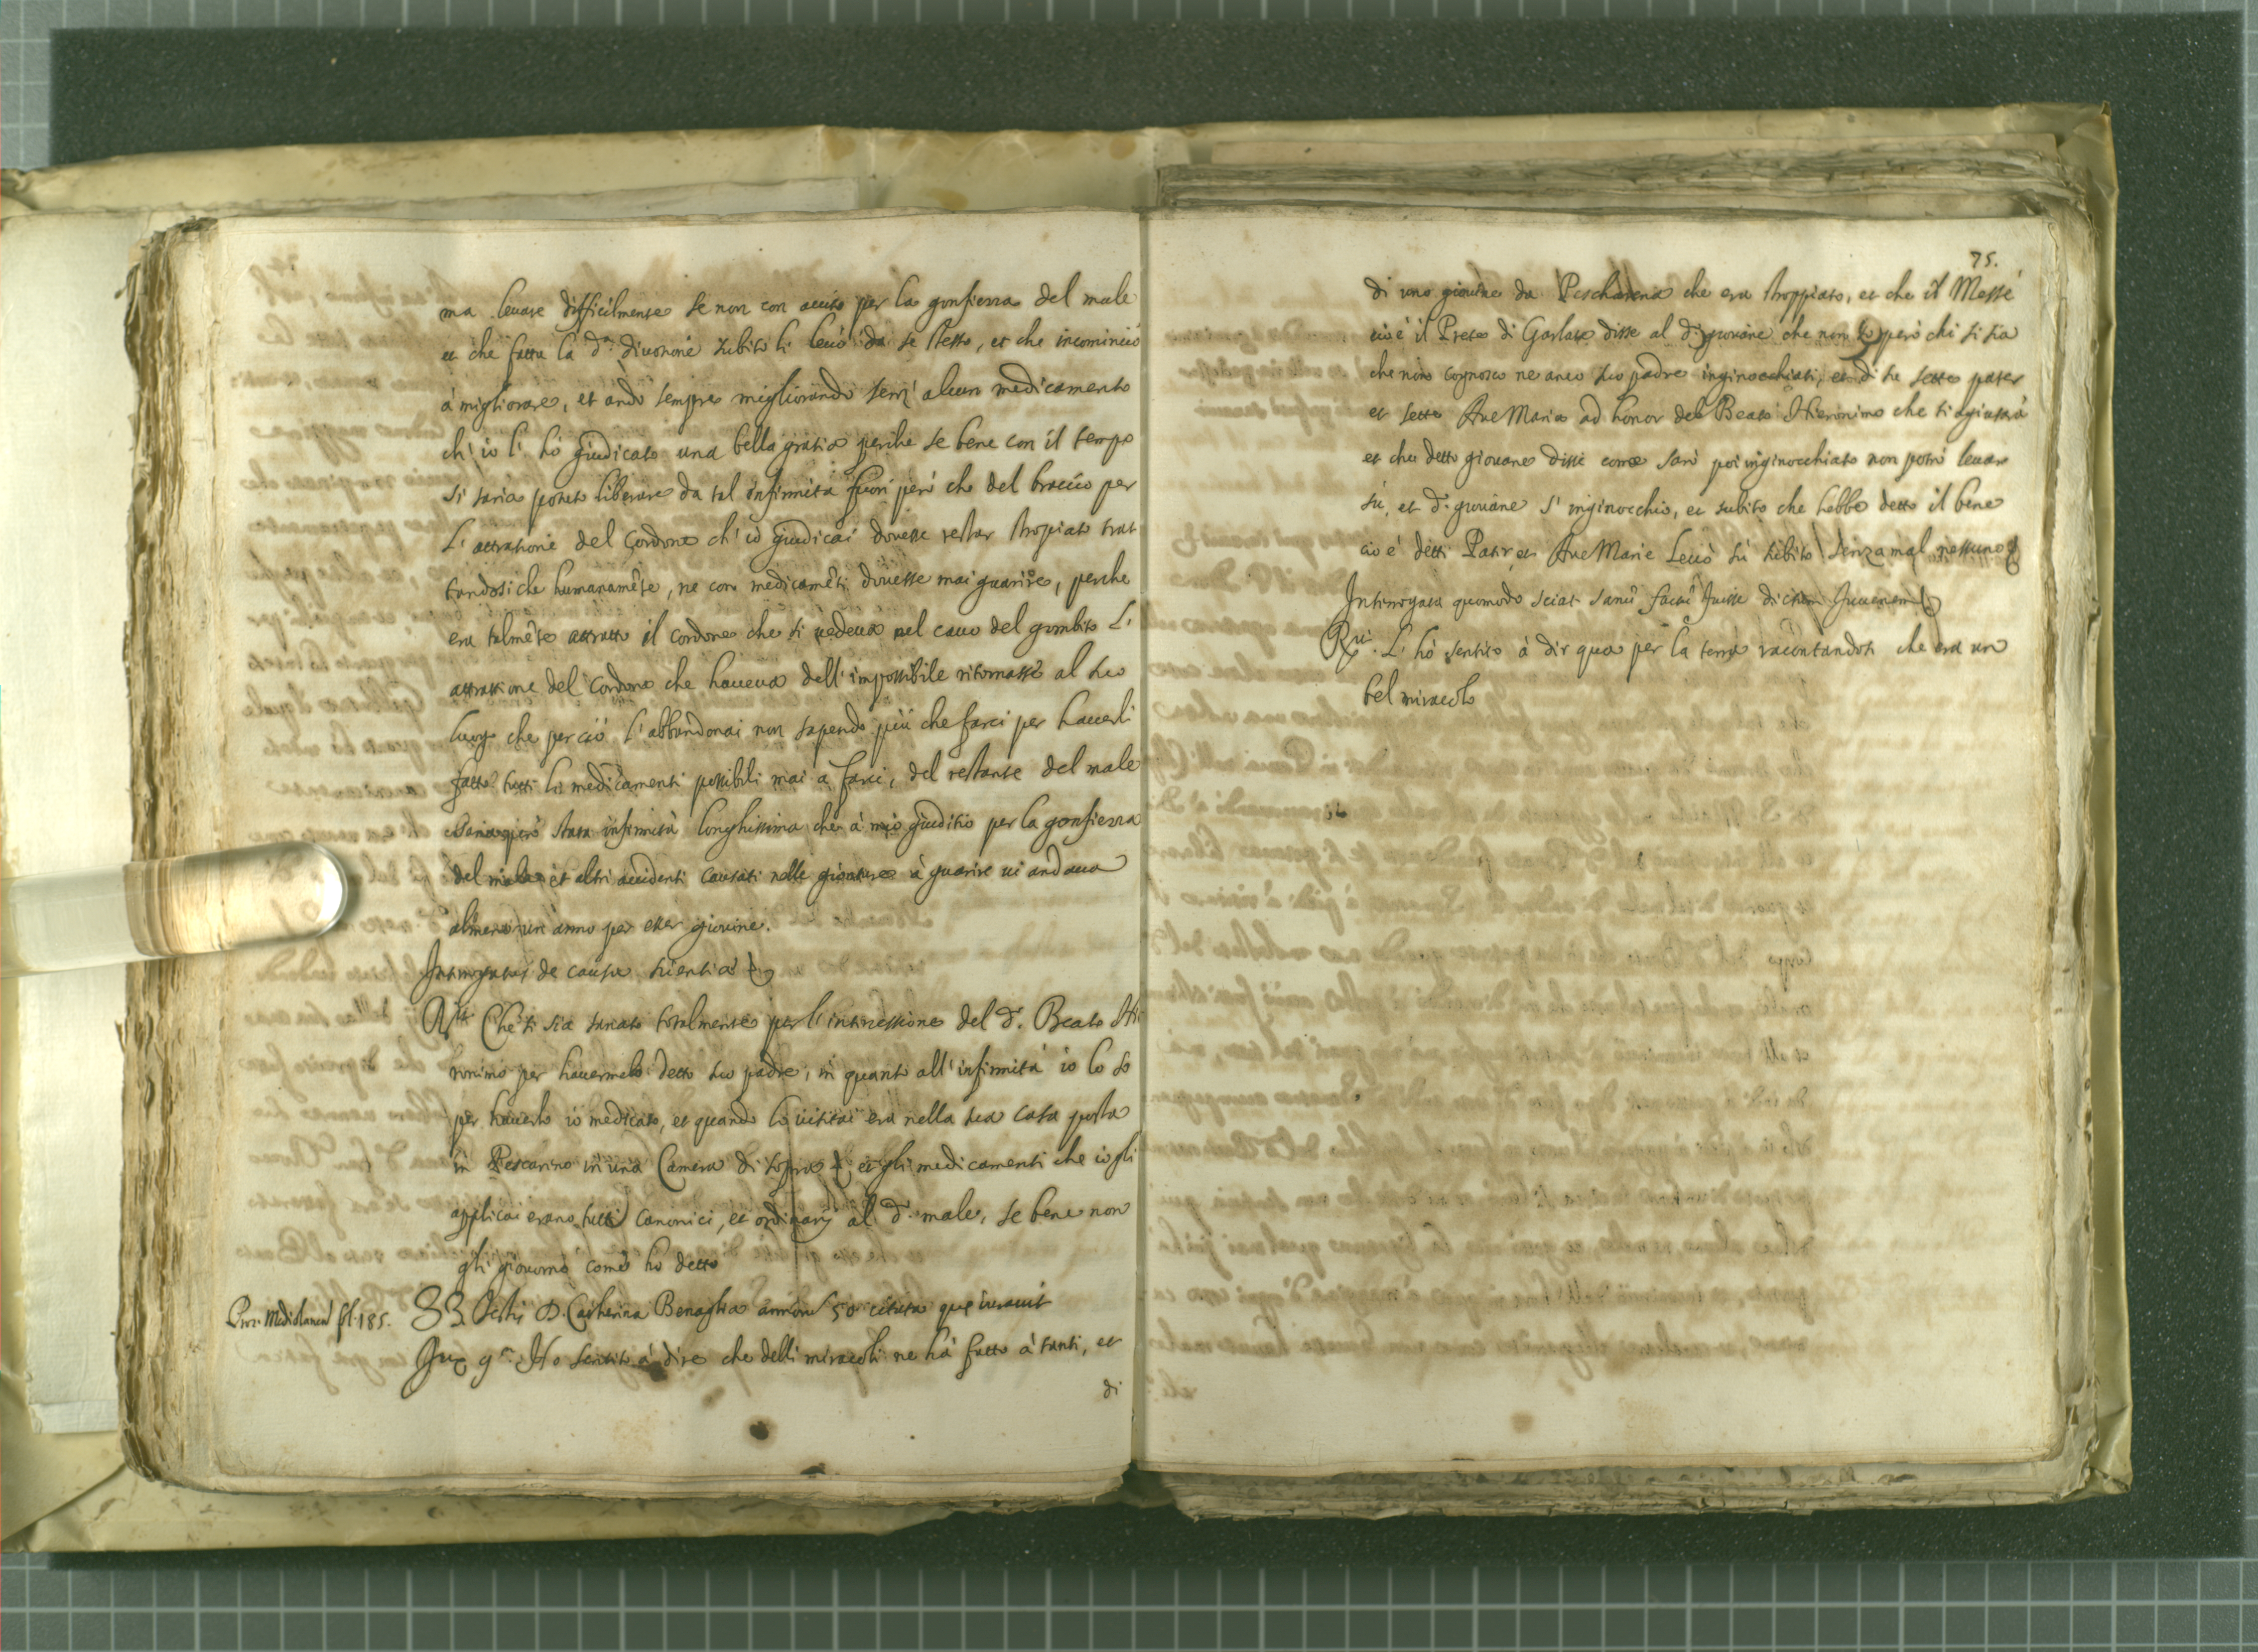 ma leuare difficilmente se non con aiuto per la gonfiezza del male
et che fatta la d.ª diuotione subito li leuò da se stesso, et che incominciò
à migliorare, et andò sempre migliorando senz' alcun medicamento
ch' io l' hò giudicato una bella gratia perche se bene con il tempo
si saria potuto liberare da tal infirmità fuori però che del braccio per
L' attratione del Cordone ch' io giudicai douesse restar stropiato trat
tandosi che humanamẽte, ne con medicamẽti douesse mai guarire, perche
era talmẽte attratto il cordone che si uedeua nel cauo del gombito L'
attrattione del Cordone che haueua dell' impossibile ritornasse al suo
luogo che perciò l' abbandonai non sapendo più che farci per hauerli
fatto tutti li medicamenti possibili mai a farci, del restante del male
saria però stata infirmità longhissima che à mio giuditio per la gonfiezza
del male et altri accidenti causati nelle gionture à guarire ui andaua
almeno un' anno per esser giouine.
Interrogatus de causa scientiæ
R.tt Che si sia sanato totalmente per l' intercessione del d.º Beato Hie
ronimo per hauermelo detto suo padre, in quanto all' infirmità io lo so
per hauerlo io medicato, et quando lo uisitai era nella sua casa posta
in Pescarino in una Camera di sopra et gli medicamenti che io gli
applicai erano tutti canonici, et ordinarij al d.º male, se bene non
gli giouorno come ho detto
Proc. Mediolanen fol. 185.
33 Testis D. Catherina Benaglia annorũ 50 citata quę iurauit
Iux 9.m Ho sentito à dire che delli miracoli ne hà fatto à tanti, et
di
75.
di uno giouine da Pescharena che era stroppiato, et che il Messè
cioè il Prete di Garlate disse al d.º giouane che non so però chi si sia
che non cognosco ne anco suo padre inginocchiati, et dì sù sette pater
et sette Aue Maria ad honor del Beato Hieronimo che ti agiutarà
et che detto giouane disse come sarò poi inginocchiato non potrò leuar
sù, et d.º giouane s' inginocchiò, et subito che hebbe detto il bene
cio è detti Patir, et Aue Marie Leuò sù subito senza mal nessuno
Interrogata quomodo sciat sanũ factũ fuisse dictum Iuuenem
R.tt L' hò sentito à dir qua per la terra racontandosi che era un
bel miracolo